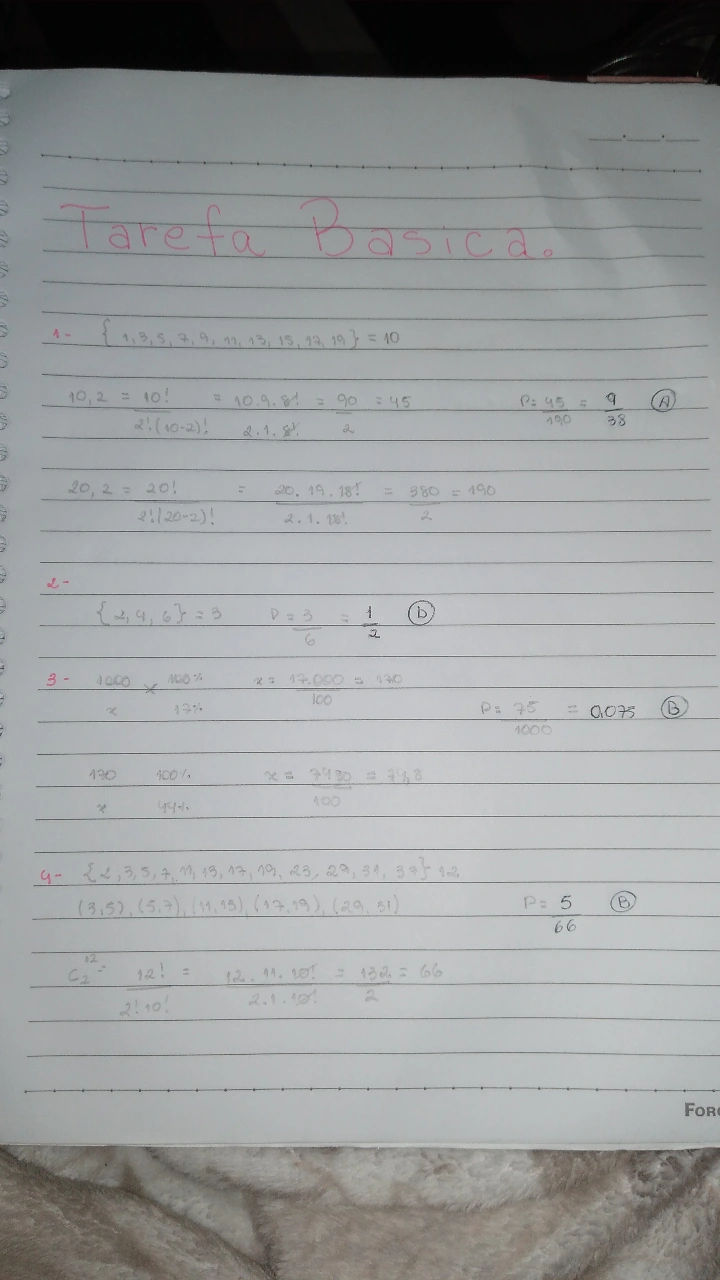 Tarefa Basica.
1- {1,3,5,7,9,11,13,15,17,19} = 10
10,2 = 10! / 2!(10-2)! = 10.9.8! / 2.1.8! = 90 / 2 = 45 P= 45 / 190 = 9 / 38 (A)
20,2 = 20! / 2!(20-2)! = 20.19.18! / 2.1.18! = 380 / 2 = 190
2-
{2,4,6} = 3 P = 3 / 6 = 1 / 2 (D)
3- 1000 x 100% x = 17.000 / 100 = 170
x 17% P= 75 / 1000 = 0,075 (B)
170 100% x = 7480 / 100 = 74,8
x 44%
4- {2,3,5,7,11,13,17,19,23,29,31,37} 12
(3,5), (5,7), (11,13), (17,19), (29,31) P= 5 / 66 (B)
C₂¹² = 12! / 2!10! = 12.11.10! / 2.1.10! = 132 / 2 = 66